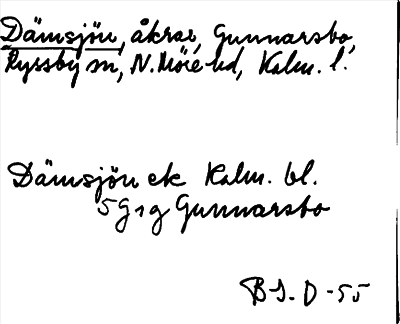 Dämsjön, åkrar, Gunnarsbo,
Ryssby sn, N. Möre hd, Kalm. l.
Dämsjön ek Kalm. bl.
5 G 1 g Gunnarsbo
B S. D -55